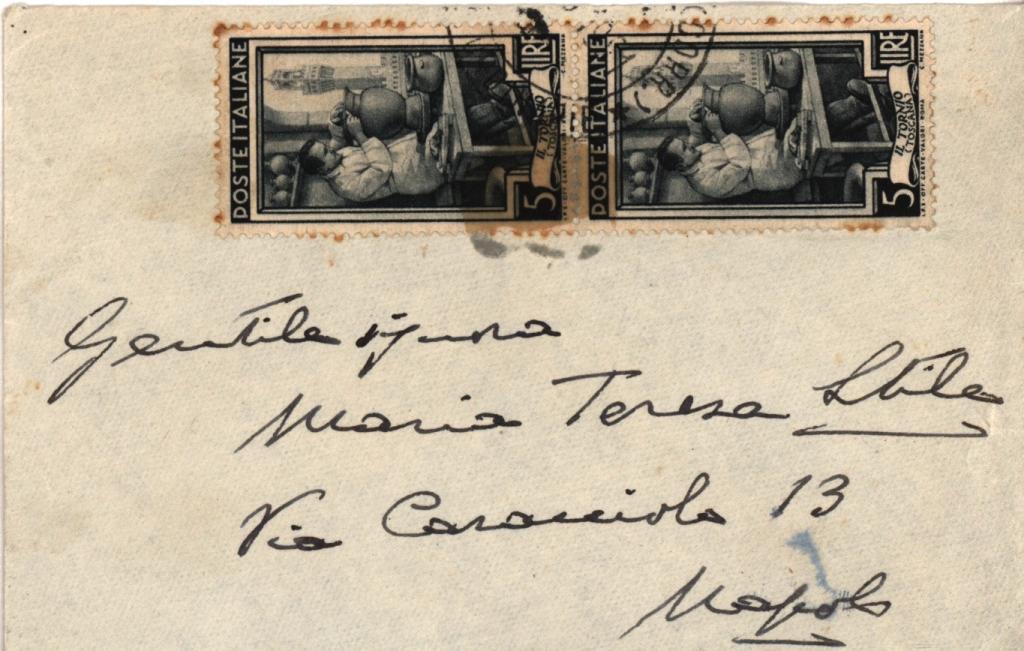 POSTE ITALIANE
5 LIRE
IL TORNIO
(TOSCANA)
POSTE ITALIANE
5 LIRE
IL TORNIO
(TOSCANA)
CORR
Gentile signora
Maria Teresa Stile
Via Caracciolo 13
Napoli